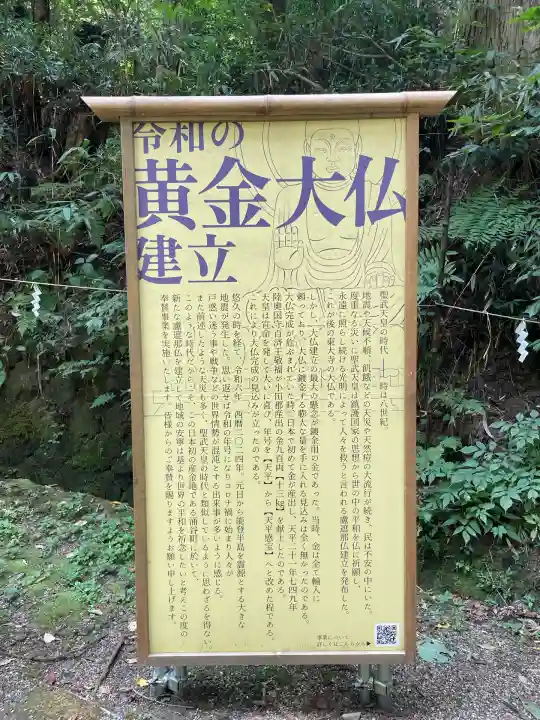 令和の
黄金大仏
建立
聖武天皇の時代――時は八世紀、
地震や天候不順、飢饉などの天災や天然痘の大流行が続き、民は不安の中にいた。
度重なる災いに聖武天皇は鎮護国家の思想から世の中の平和を仏に祈願し、
永遠に照らし続ける光明によって人々を救うと言われる盧遮那仏建立を発布した。
これが後の東大寺の大仏である。
しかし、大仏建立の最大の懸念が鍍金用の金であった。当時、金は全て輸入に
頼っており、大仏に鍍金する膨大な量を手に入れる見込みは全く無かったのである。
大仏完成が危ぶまれていた時、日本で初めて金が産出し、天平二十一年七四九年
陸奥国守百済王敬福が小田郡産出の金九百両【十三㎏】を献上したのである。
天皇は宣命を発して大いに喜び、年号を【天平】から【天平感宝】へと改めた程である。
これにより大仏完成の見込みが立ったのである。
悠久の時を経て、令和六年 西暦二〇二四年 元日から能登半島を震源とする大きな
地震が発生した。思い返せば令和の年号になりコロナ禍に始まり人々が
戸惑い迷う事や戦争などの世界情勢が混沌とする出来事が多いように感じる。
また前述したような天災も多く、聖武天皇の時代と類似しているように思わざるを得ない。
このような時代だからこそ、この日本初の産金地である涌谷町に於いて、
新たな盧遮那仏を建立して地域の安寧は基より世界の平和を祈念したいと考えこの度の
奉賛事業を実施いたします。皆様からのご奉賛を賜りますようお願い申し上げます。
事業について
詳しくはこちらから▶